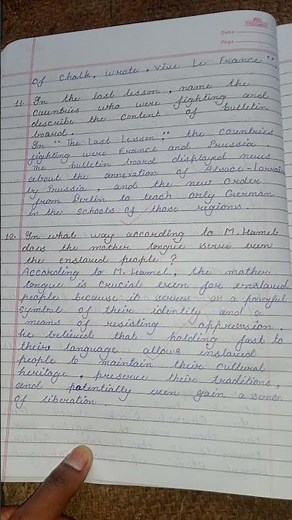 Date
Page
of chalk, wrote, vive La France "
11. In the last lesson, name the
countries who were fighting and
describe the content of bulletin
board.
In "The Last Lesson" the countries
fighting were France and Prussia
The bulletin board displayed news
about the annexation of Alsace-Lorrain
by Prussia, and the new order
from Berlin to teach only German
in the schools of those regions.
12. In what way according to M. Hamel
does the mother tongue serve even
the enslaved people?
According to M. Hamel, the mother
tongue is crucial even for enslaved
people because it serves as a powerful
symbol of their identity and a
means of resisting oppression.
he believed that holding fast to
their language allows enslaved
people to maintain their cultural
heritage, preserve their traditions,
and potentially even gain a sense
of liberation